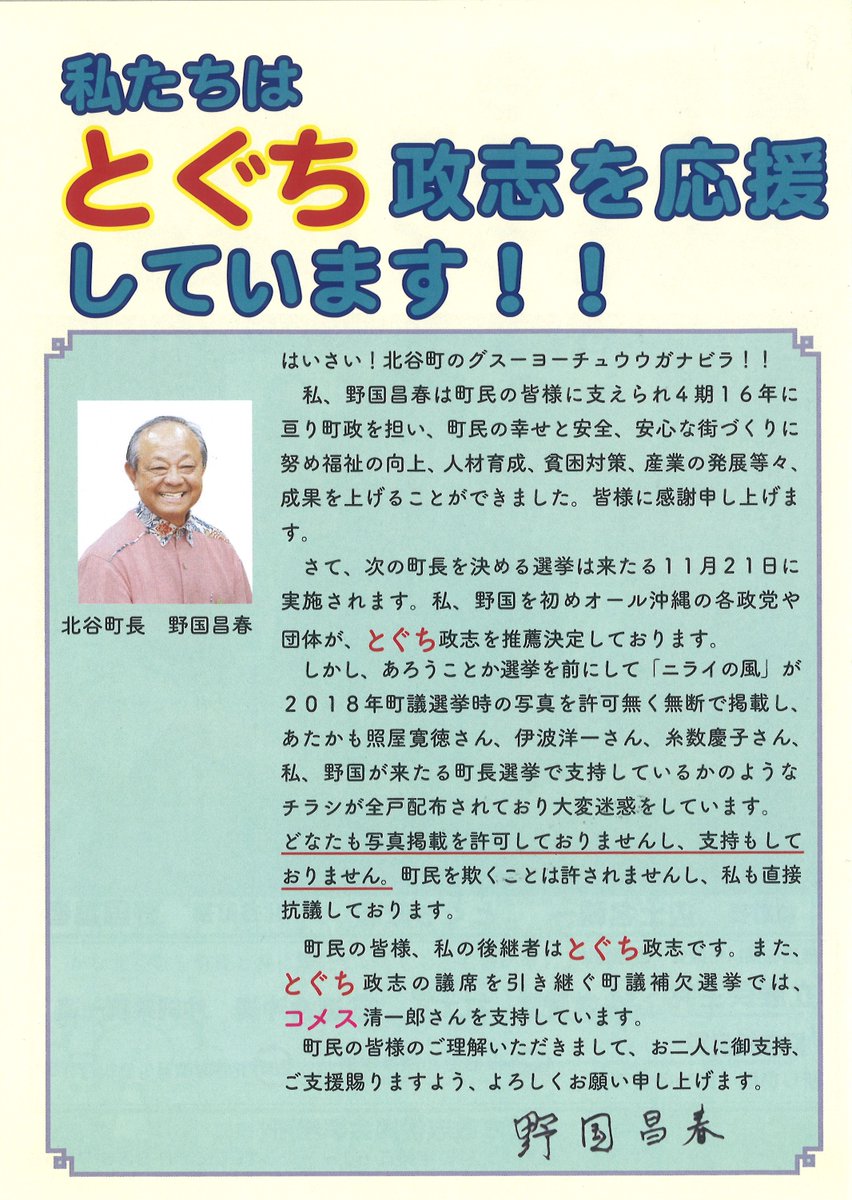 私たちは
とぐち政志を応援
しています！！
はいさい！北谷町のグスーヨーチュウウガナビラ！！
私、野国昌春は町民の皆様に支えられ４期１６年に
亘り町政を担い、町民の幸せと安全、安心な街づくりに
努め福祉の向上、人材育成、貧困対策、産業の発展等々、
成果を上げることができました。皆様に感謝申し上げま
す。
さて、次の町長を決める選挙は来たる１１月２１日に
実施されます。私、野国を初めオール沖縄の各政党や
団体が、とぐち政志を推薦決定しております。
しかし、あろうことか選挙を前にして「ニライの風」が
２０１８年町議選挙時の写真を許可無く無断で掲載し、
あたかも照屋寛徳さん、伊波洋一さん、糸数慶子さん、
私、野国が来たる町長選挙で支持しているかのような
チラシが全戸配布されており大変迷惑をしています。
どなたも写真掲載を許可しておりませんし、支持もして
おりません。町民を欺くことは許されませんし、私も直接
抗議しております。
町民の皆様、私の後継者はとぐち政志です。また、
とぐち政志の議席を引き継ぐ町議補欠選挙では、
コメス清一郎さんを支持しています。
町民の皆様のご理解いただきまして、お二人に御支持、
ご支援賜りますよう、よろしくお願い申し上げます。
野国昌春
北谷町長　野国昌春